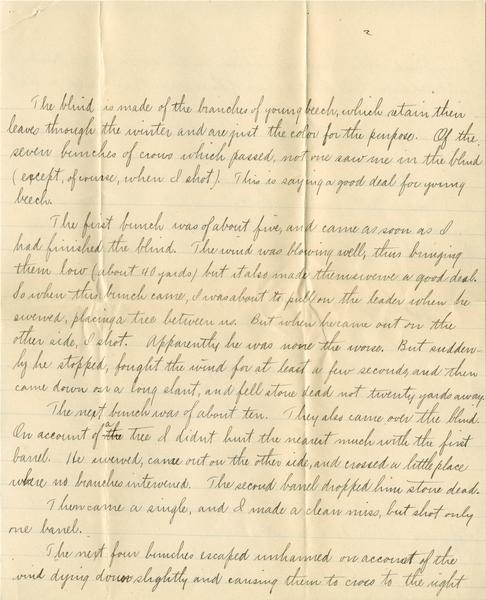 2
The blind is made of the branches of young beech, which retain their
leaves through the winter and are just the color for the purpose. Of the
seven bunches of crows which passed, not one saw me in the blind
(except, of course, when I shot). This is saying a good deal for young
beech.
The first bunch was of about five, and came as soon as I
had finished the blind. The wind was blowing well, thus bringing
them low (about 40 yards) but it also made them swerve a good deal.
So when this bunch came, I was about to pull on the leader when he
swerved, placing a tree between us. But when he came out on the
other side, I shot. Apparently he was none the worse. But sudden-
ly he stopped, fought the wind for at least a few seconds, and then
came down on a long slant, and fell stone dead not twenty yards away.
The next bunch was of about ten. They also came over the blind.
On account of a the tree I didnt hurt the nearest much with the first
barrel. He swerved, came out on the other side, and crossed a little place
where no branches intervened. The second barrel dropped him stone dead.
Then came a single, and I made a clean miss, but shot only
one barrel.
The next four bunches escaped unharmed on account of the
wind dying down slightly and causing them to cross to the right